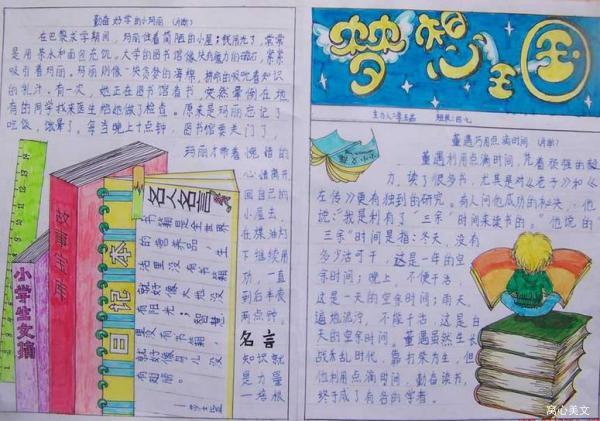 勤奋好学的小玛丽 (月刊)
在巴黎求学期间，玛丽住着简陋的小屋；钱用光了，常常
是用茶水和面包充饥，大学的图书馆像块有魔力的磁石，紧紧
吸引着玛丽，玛丽则像一块贪婪的海绵，拼命的吸吮着知识
的乳汁。有一次，她正在图书馆看书，突然晕倒在地
有的同学找来医生给她做了检查。原来是玛丽忘记了
吃饭，饿晕了，每当晚上十点钟，图书馆要关门了，
玛丽才带着惋惜的
心情离开
回自己的
小屋去，
在煤油灯
下继续用
功，一直
到后半夜
两点钟。
名言
知识就
是力量
—培根
故事宝库
小学生文摘
日记本
名人名言
书籍是全世界
的营养品。生
活里没有书籍
就好像大地没
有阳光；智慧
里没有书籍，
就好像鸟儿没
有翅膀。
梦想王国
主办人：李
董遇巧用点滴时间 (月刊)
董遇利用点滴时间，凭着顽强的毅
力，读了很多书，尤其是对《老子》和《
左传》更有独到的研究。有人问他成功的秘诀，他
说："我是利有了"三余"时间来读书的。"他说的"
三余"时间是指：冬天，没有
多少活可干，这是一年的空
余时间；晚上，不便干活，
这是一天的空余时间；雨天，
遍地泥泞，不能干活，这是白
天的空余时间。董遇虽然生长
战东乱时代，靠打柴为生，但
他利用点滴时间，勤奋读书，
终于成了有名的学者。
窝心美文